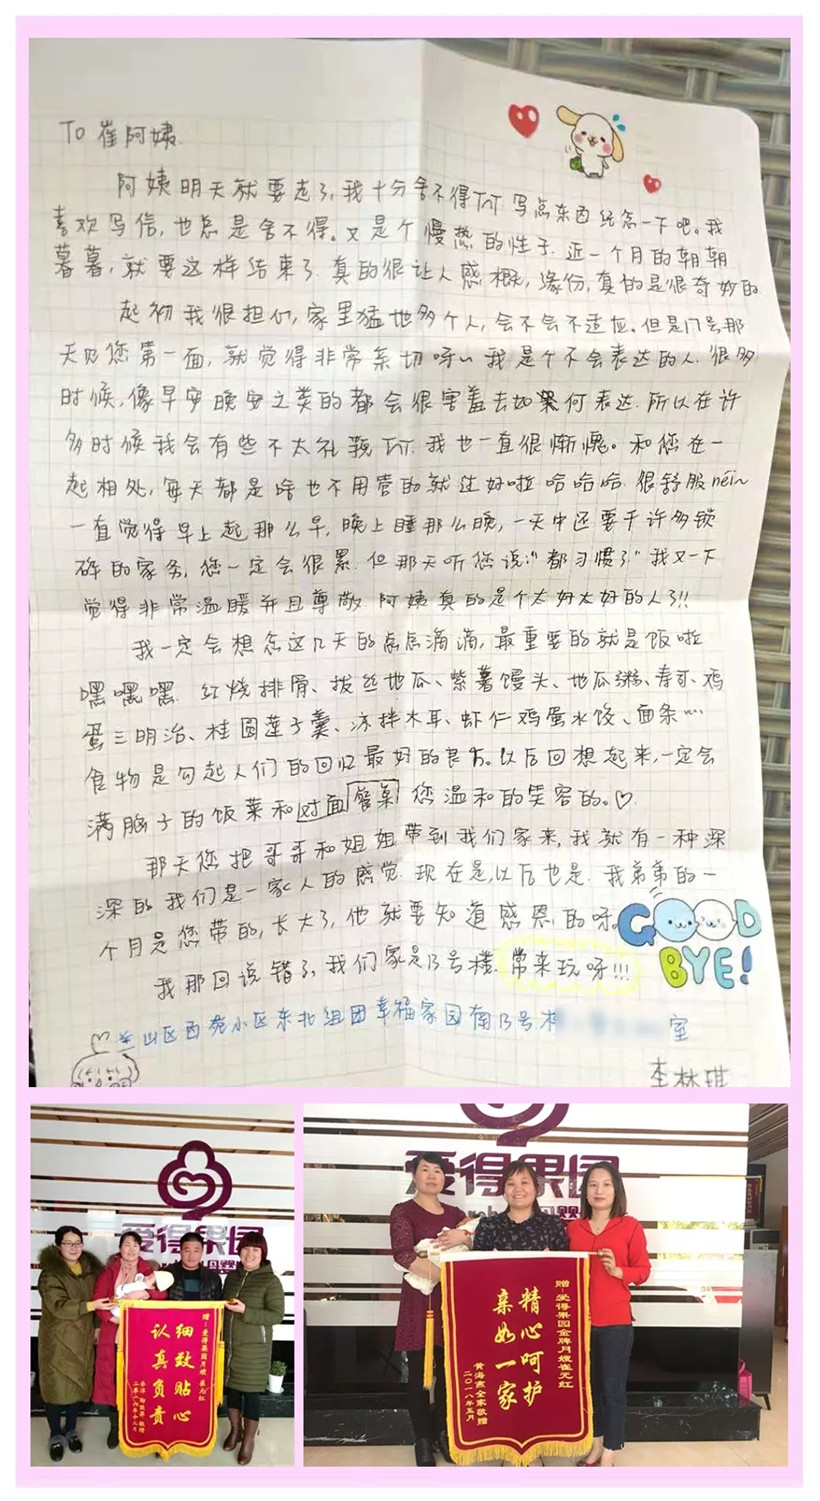 To 崔阿姨
阿姨明天就要走了,我十分舍不得TAT 写点东西纪念一下吧。我
喜欢写信,也总是舍不得。又是个慢热的性子.近一个月的朝朝
暮暮,就要这样结束了.真的很让人感概,缘份,真的是很奇妙的
起初我很担心,家里猛地多个人,会不会不适应。但是门号那
天见您第一面,就觉得非常亲切呀~我是个不会表达的人.很多
时候,像早安晚安之类的都会很害羞去如何表达.所以在许
多时候我会有些不太礼貌TAT.我也一直很惭愧。和您在一
起相处,每天都是啥也不用管的就过好啦哈哈哈.很舒服néin
一直觉得早上起那么早,晚上睡那么晚,一天中还要干许多锁
碎的家务,您一定会很累.但那天听您说"都习惯了"我又一下
觉得非常温暖并且尊敬.阿姨真的是个太好太好的人了!!
我一定会想念这几天的点点滴滴,最重要的就是饭啦
嘿嘿嘿.红烧排骨、拔丝地瓜、紫薯馒头、地瓜粥、寿司、鸡
蛋三明治、桂圆莲子羹、凉拌木耳、虾仁鸡蛋水饺、面条……
食物是勾起人们的回忆最好的良方。以后回想起来,一定会
满脑子的饭菜和对面餐桌您温和的笑容的。♡
那天您把哥哥和姐姐带到我们家来,我就有一种深
深的我们是一家人的感觉.现在是,以后也是.我弟弟的一
个月是您带的,长大了,他就要知道感恩的呀。
GOOD
BYE!
我那回说错了,我们家是13号楼.常来玩呀!!!
山区西苑小区东北组团幸福家园南13号 室
李林琪
爱得果园
认真负责
细致贴心
爱得果园
赠:爱得果园金牌月嫂崔元红
精心呵护
亲如一家
黄海燕全家敬赠
二〇一八年五月